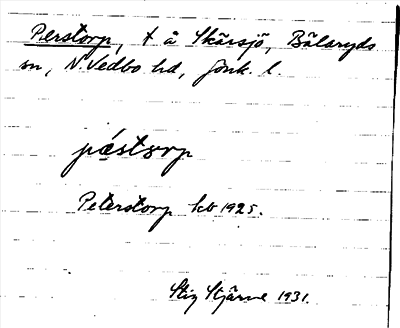 Perstorp, t å Skärsjö, Bälaryds
sn, N. Vedbo hd, Jönk. l.
pæ̀stɔrp
Peterstorp kb 1925.
Stig Stjärne 1931.